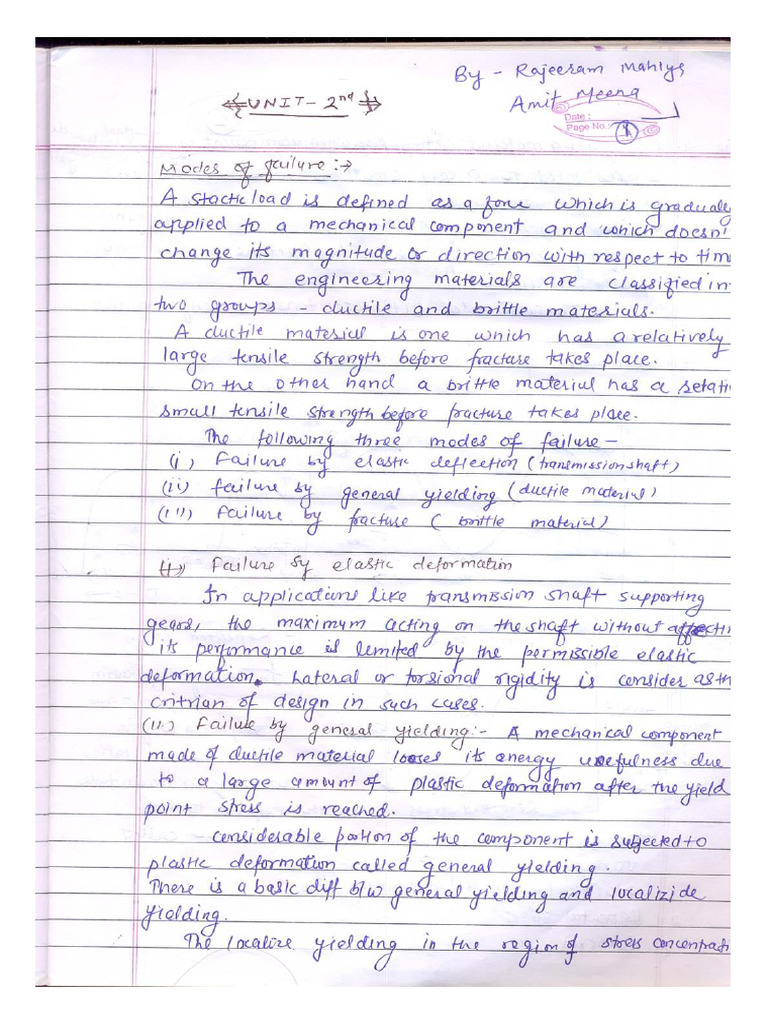 By - Rajeeram Mahlys
UNIT - 2nd
Amit Meena
Date :
Page No.: 1
Modes of failure :→
A stactic load is defined as a force which is gradualey
applied to a mechanical component and which doesn't
change its magnitude or direction with respect to time
The engineering materials are classified in
two groups - ductile and brittle materials.
A ductile material is one which has a relatively
large tensile strength before fracture takes place.
On the other hand a brittle material has a
small tensile strength before fracture takes place.
The following three modes of failure -
(i) Failure by elastic deflection (transmission shaft)
(ii) failure by general yielding (ductile material)
(iii) Failure by fracture ( brittle material)
Failure by elastic deformation
In applications like transmission shaft supporting
gears, the maximum acting on the shaft without affectin
its performance is limited by the permissible elastic
deformation. Lateral or torsional rigidity is consider as th
critrian of design in such cases.
(ii.) Failure by general yielding:- A mechanical component
made of ductile material looses its energy usefulness due
to a large amount of plastic deformation after the yield
point stress is reached.
considerable portion of the component is subjected to
plastic deformation called general yielding.
There is a basic diff b/w general yielding and localizide
yielding.
The localize yielding in the region of stress concentrati